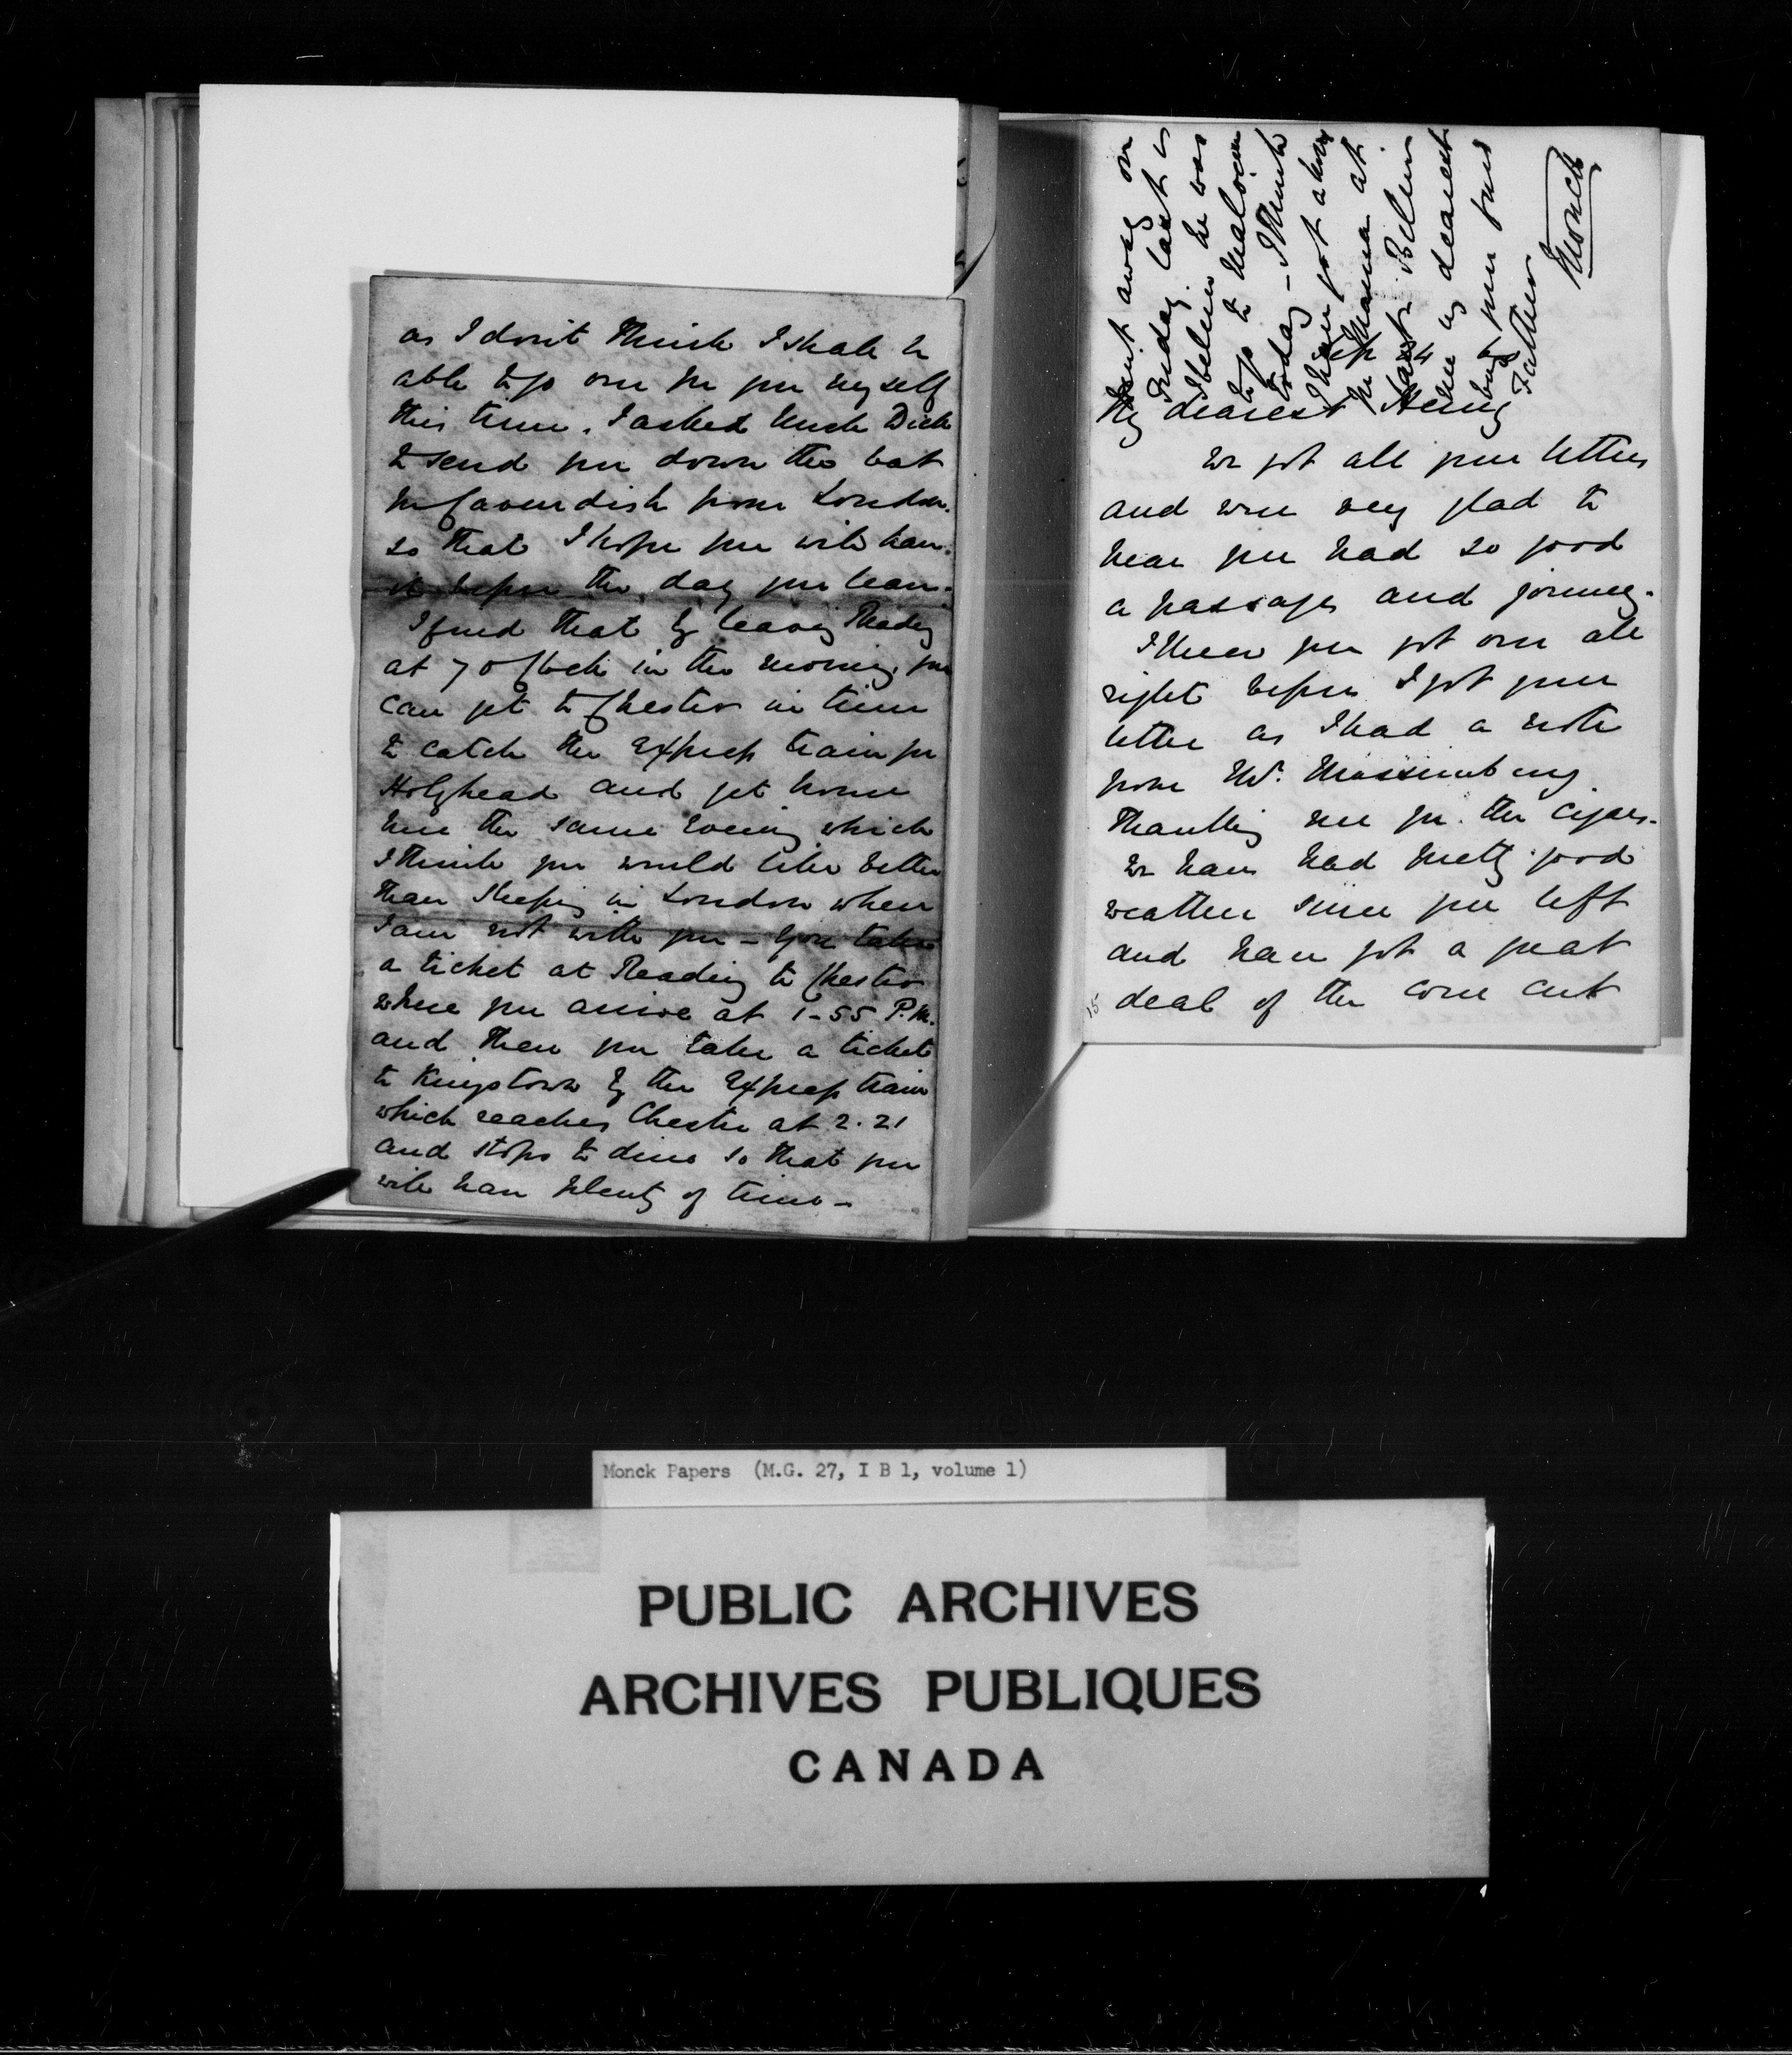 as I don't think I shall be
able to go over for you myself
this time. I asked Uncle Dick
to send you down the bat
for Cavendish from London.
so that I hope you will have
it before the day you leave.
I find that by leaving Reading
at 7 o'clock in the morning you
can get to Chester in time
to catch the Express train for
Holyhead and get home
here the same evening which
I think you would like better
than sleeping in London when
I am not with you – You take
a ticket at Reading to Chester
where you arrive at 1-55 P.M.
and then you take a ticket
to Kingstown by the Express train
which reaches Chester at 2.21
and stops to dine so that you
will have plenty of time –
went away on
Friday last &
I believe he was
to go to
today – I think
I have got a horse
for Mamma at
last. Believe
me my dearest
boy your fond
Father
Monck
Sep 24
My dearest Henry
We got all your letters
and were very glad to
hear you had so good
a passage and journey.
I knew you got over all
right before I got your
letter as I had a note
from Mr. Massingberg
thanking me for the cigars.
We have had pretty good
weather since you left
and have got a great
15 deal of the corn cut
Monck Papers (M.G. 27, I B 1, volume 1)
PUBLIC ARCHIVES
ARCHIVES PUBLIQUES
CANADA